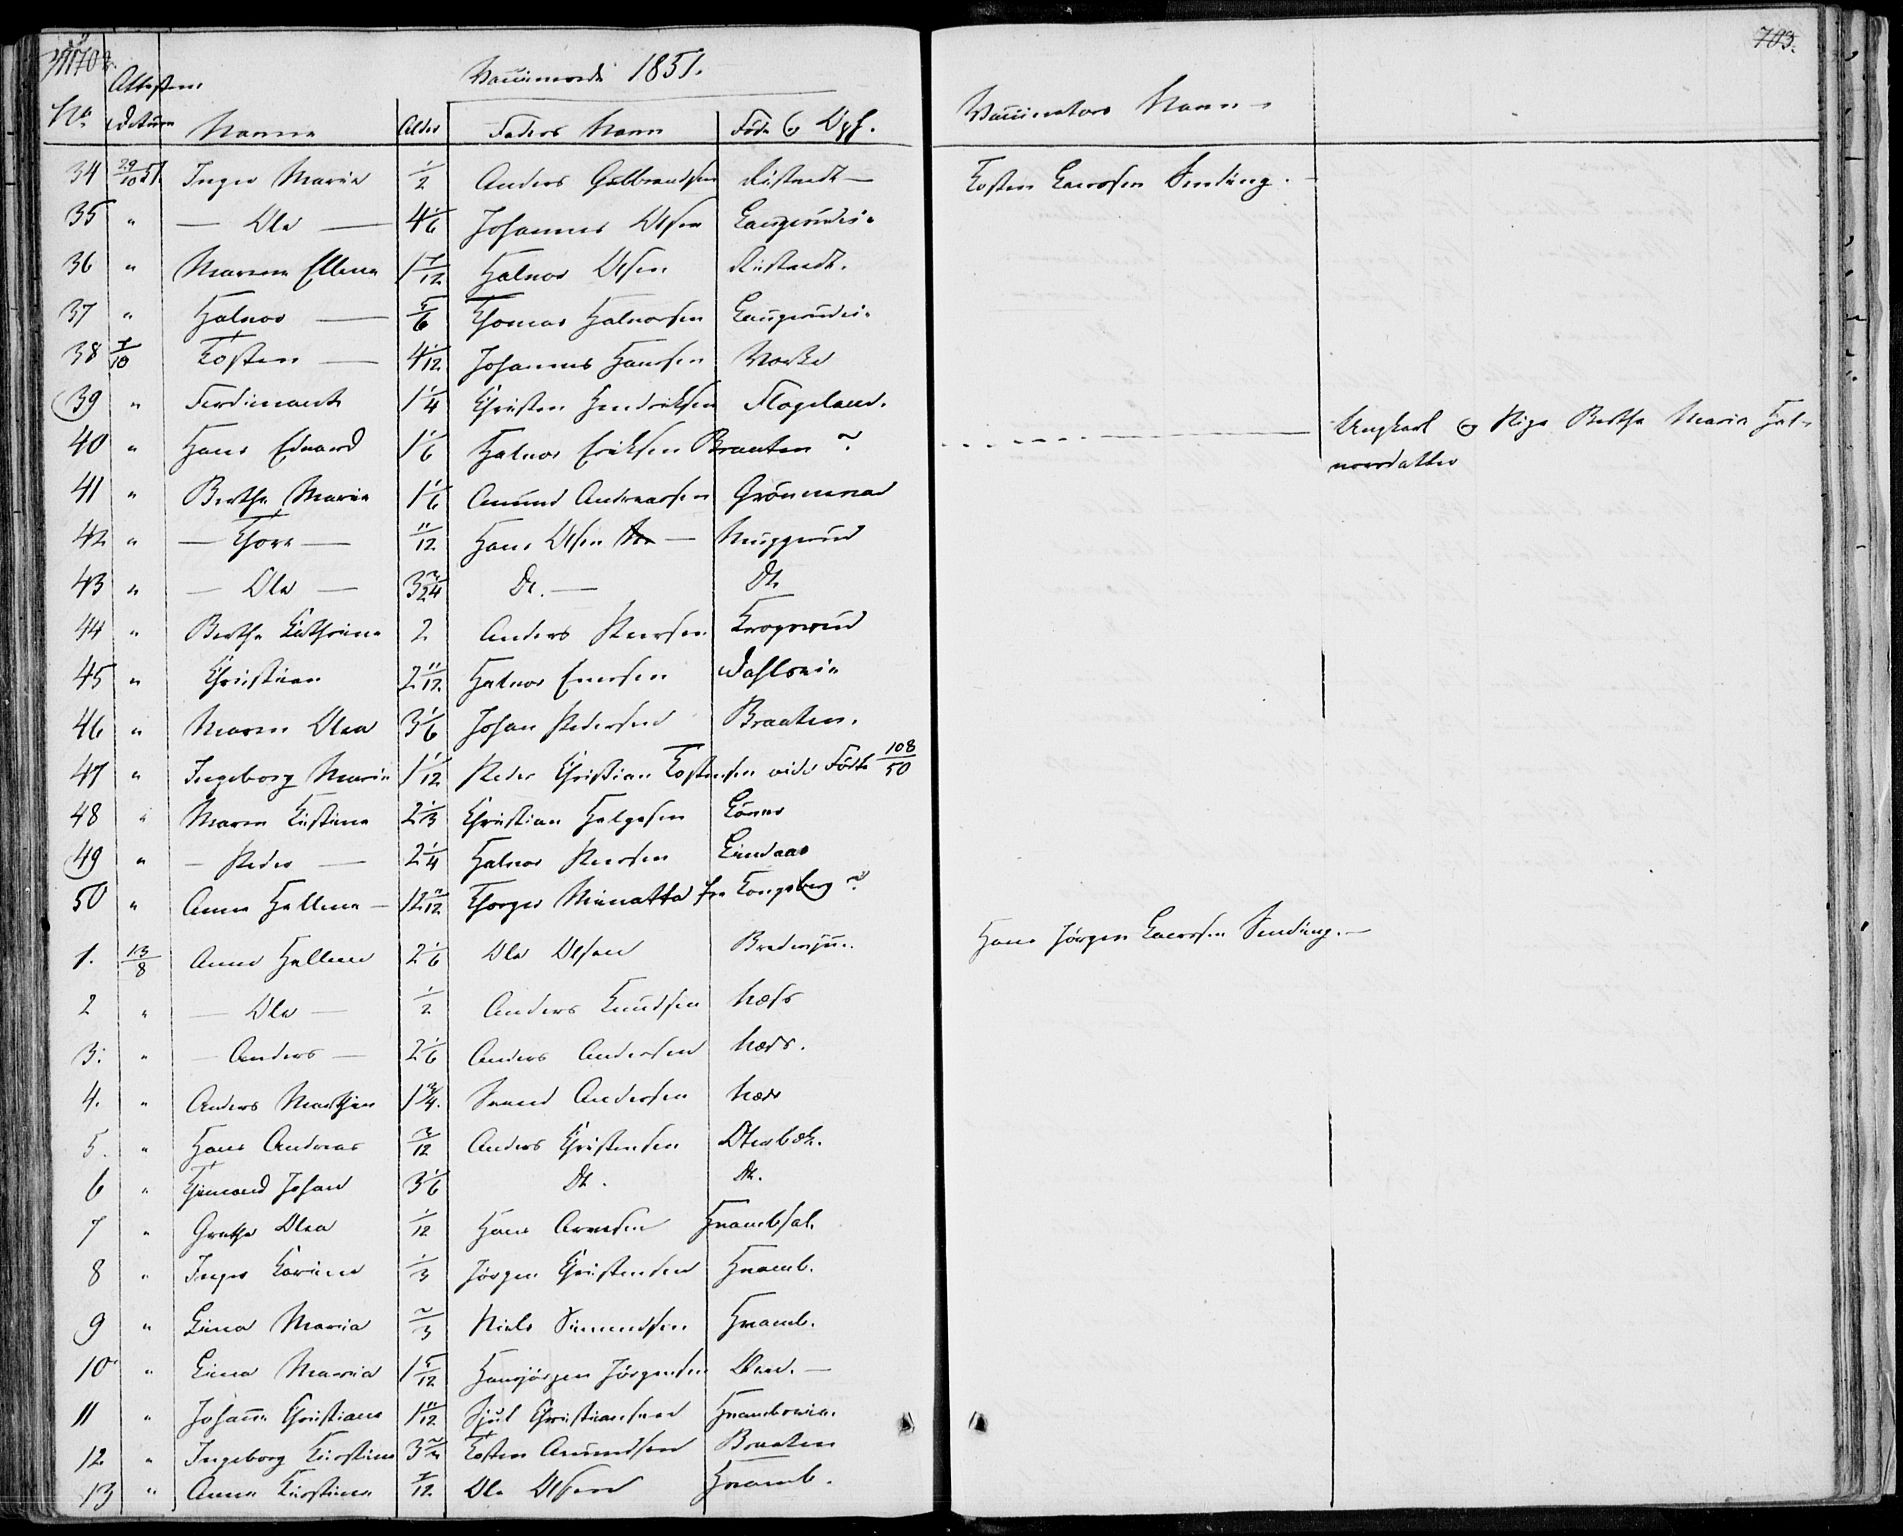 702.
703.
Attestens
Vaccinerede 1851.
No. Datum Navne Alder Faders Navn Føde og Opf.
Vaccinators Navn
34 29/10 51. Inger Maria 1/2 Anders Gulbrandsen Rustandt — Tosten Larssen Sending. —
35 " — Ole — 4 1/6 Johannes Olsen Laugerudei.
36 " Maren Ellena 1 7/12 Halvor Olsen Rustandt.
37 " Halvor — 5/6 Thomas Halvorsen Laugerudei.
38 7/10 Tosten — 4 1/12 Johannes Hansen
39 " Ferdinant 1 1/4 Christen Hendriksen Flageland.
40 " Hans Edvard 1 1/6 Halvor Eriksen Braaten ~ Ungkarl og Pige Berthe Maria Hal-
vorsdatter
41 " Berthe Maria 1 1/6 Amund Andreassen
42 " — Thore — 11/12 Hans Olsen — Muggerud
43 " — Ole — 3 3/24 Do. — Do.
44 " Berthe Kathrine 2 Anders Peersen Krogerud
45 " Christian 2 11/12 Halvor Enersen
46 " Maren Olea 3 1/6 Johan Pedersen Braaten.
47 " Ingeborg Maria 1 1/12 Peder Christian Tostensen vide Fødte 108/50
48 " Maren Kistine 2 1/3 Christian Helgesen
49 " — Peder — 2 1/4 Halvor Peersen Lindaas
50 " Anne Hellene — 12 11/12 Thorger fra Kongsberg ~
1. 13/8 Anne Hellene 2 1/6 Ole Olsen Hans Jørgen Larssen Sending. —
2 " — Ole — 1/2 Anders Knudsen Næss
3. " — Anders — 2 1/6 Anders Andersen Næss.
4. " Anders Mathias 1 3/4. Svend Andersen Næss
5. " Hans Andreas 3/12 Anders Christensen Oterbæk.
6 " Johan 3 1/6 Do. Do.
7 " Grethe Olea 1/12 Hans Arnesen
8 " Inger Karine 1/3 Jørgen Christensen Hvamb.
9 " Lina Maria 2/3 Niels Simundsen Hvamb.
10 " Lina Maria 1 5/12 Hansjørgen Jørgensen
11 " Johanne Christiane 1 11/12 Sjul Christiansen
12 " Ingeborg Kirstine 3 2/3 Tosten Amundsen Braaten
13 " Anne Kirstine 7/12 Ole Olsen Hvamb.